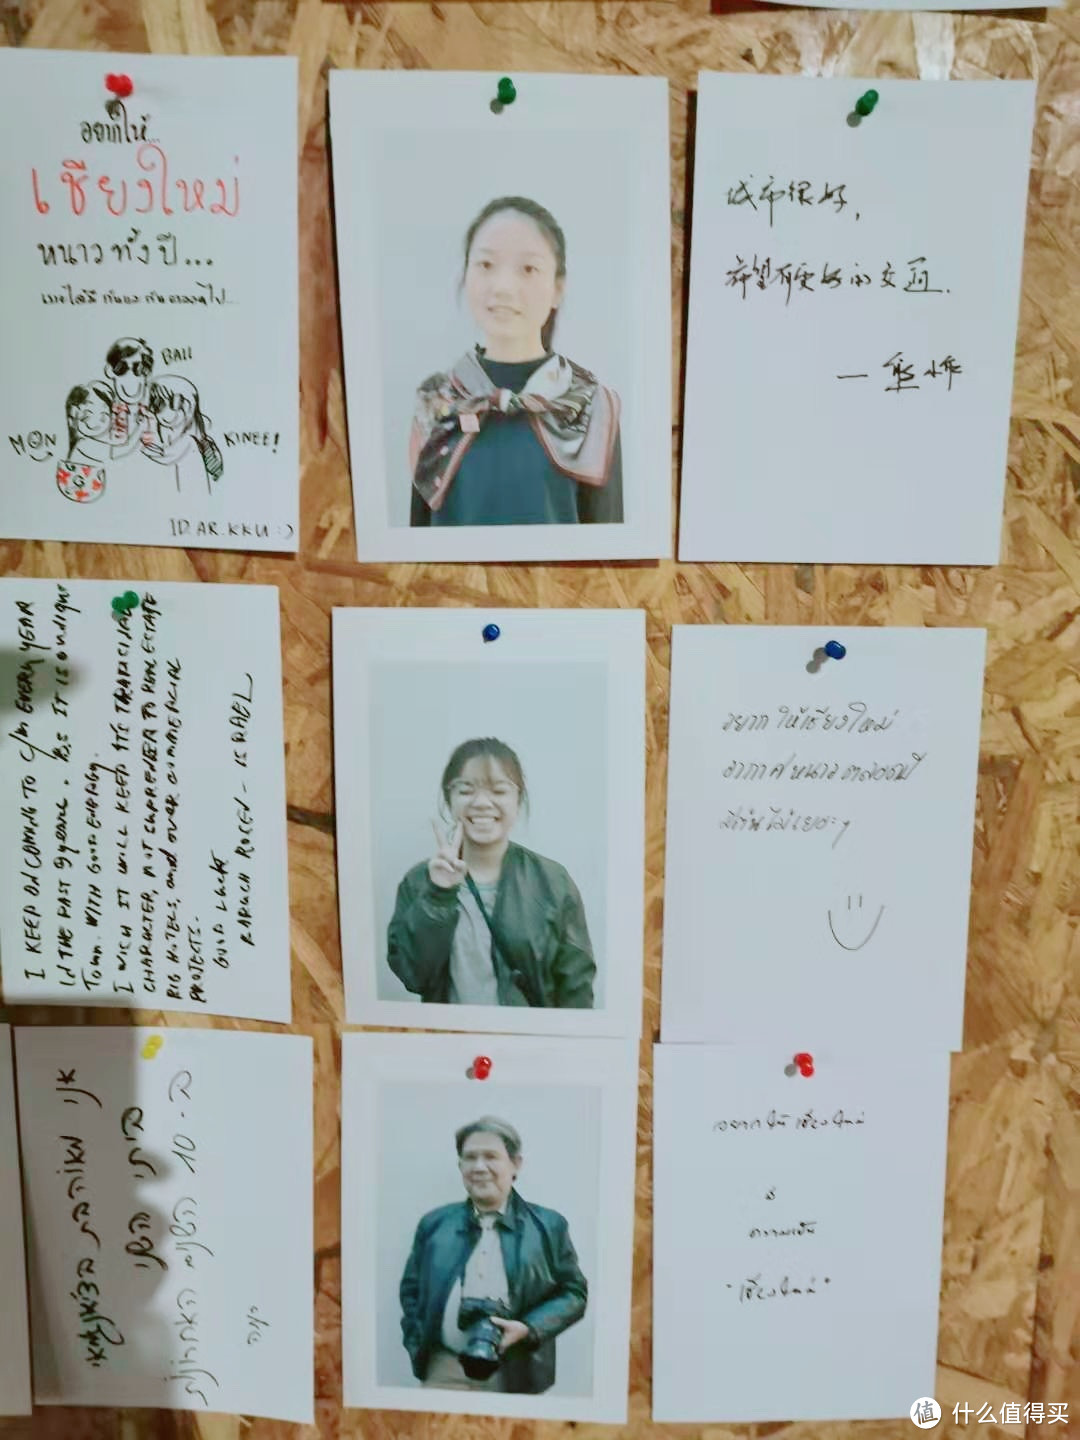 อยากให้...
เชียงใหม่
หนาวทั้งปี...
BALL
MON
KINEE!
ID.AR.KKU :)
城市很好，
希望有更好的交通.
I KEEP ON COMING TO C/M EVERY YEAR
IN THE PAST 9 YEARS. IT IS UNIQUE
TOWN. WITH GOOD ENERGY.
I WISH IT WILL KEEP ITS TRADICIONAL
CHARACTER, NOT SURRENDER TO REAL ESTATE
BIG HOTELS, and OVER COMMERCIAL
PROJECTS.
GOOD LUCK
BARUCH ROSEN - ISRAEL
อยากให้เชียงใหม่
อากาศหนาวตลอดปี
אני מאוהבת בצ'אנג מאי
ביתי השני
ב-10 השנים האחרונות
อยากให้เชียงใหม่
มี
ความเป็น
"เชียงใหม่"
值 什么值得买